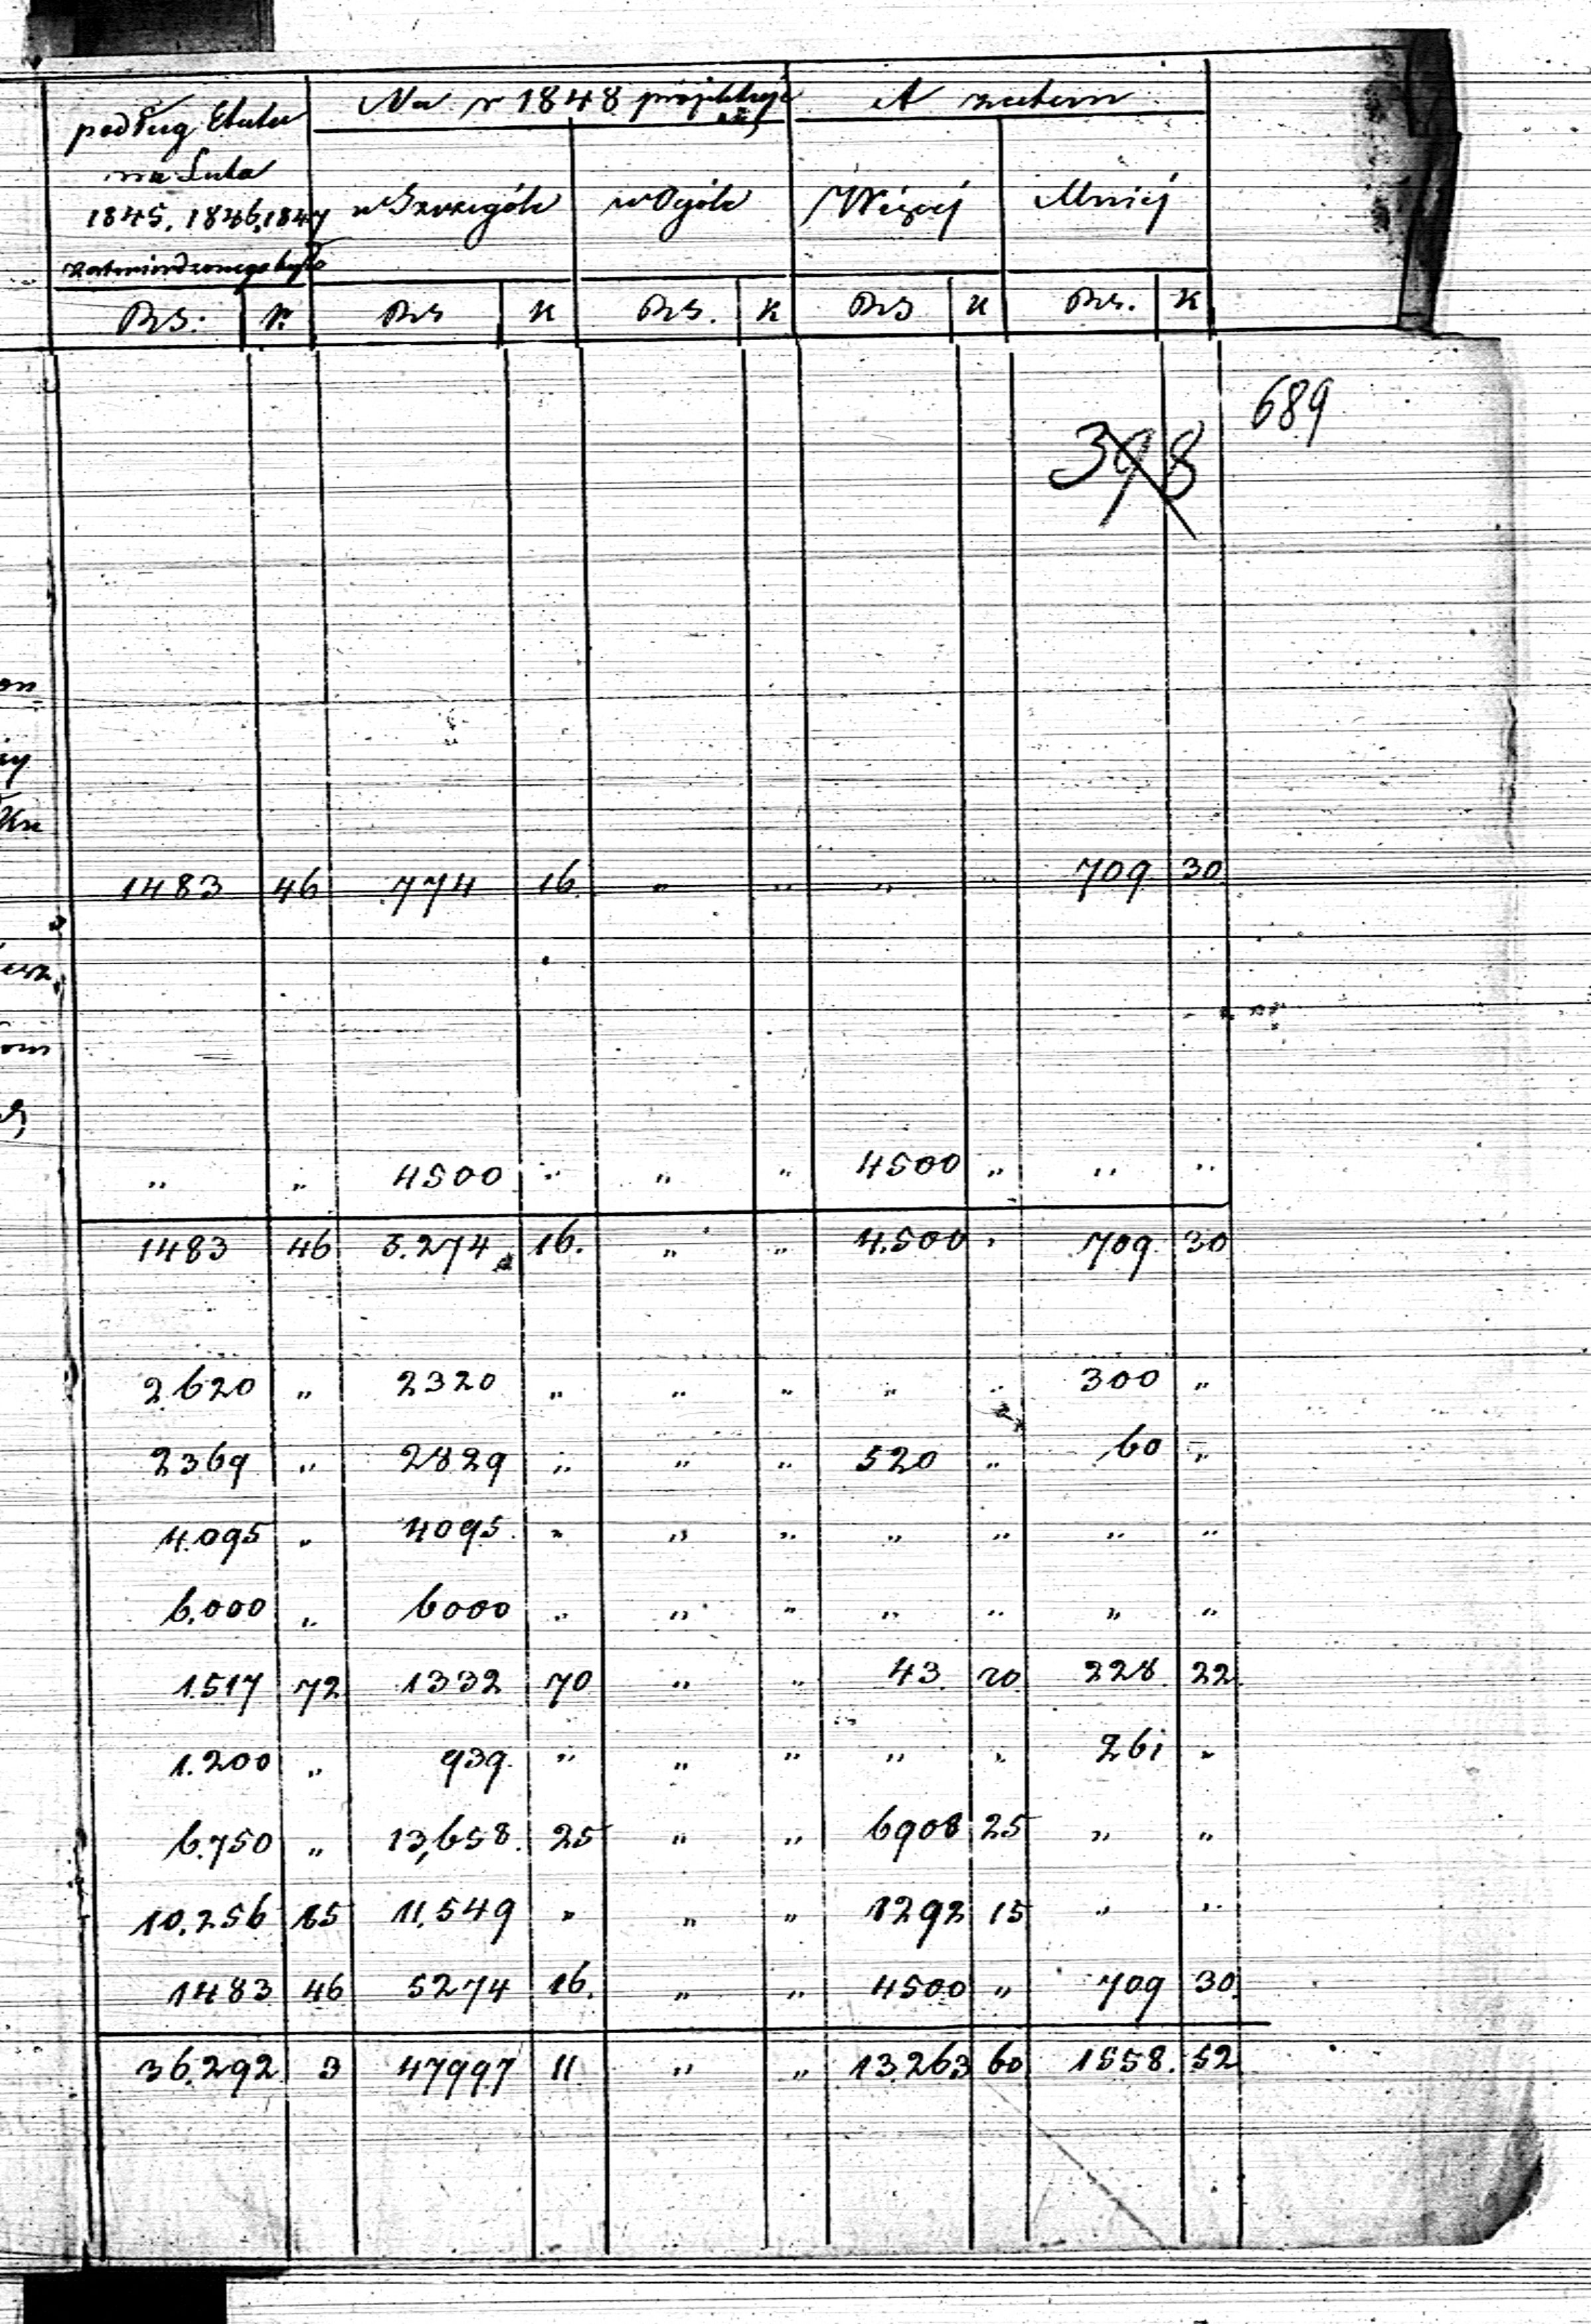 podług Etatu
na Lata
1845, 1846, 1847
zatwierdzonego było
Na r 1848 projektuje
się
A zatem
w Szczególe
w Ogóle
Więcej
Mniej
Rs. K. Rs K Rs. K Rs K Rs. K
689
398
1483 46 774 16 " " " " 709 30
" " 4500 " " " 4500 " " "
1483 46 5.274 16. " " 4.500 " 709 30
2.620 " 2320 " " " " " 300 "
2369 " 2829 " " " 520 " 60 "
4.095 " 4095 " " " " " " "
6.000 " 6000 " " " " " " "
1.517 72 1332 70 " " 43 20 228 22
1.200 " 939 " " " " " 261 "
6.750 " 13,658 25 " " 6908 25 " "
10.256 85 11.549 " " " 1292 15 " "
1483 46 5274 16. " " 4500 " 709 30
36.292 3 47997 11 " " 13.263 60 1558. 52